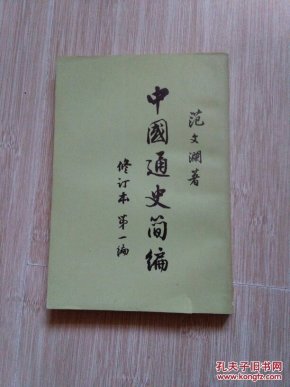 范文澜著
中國通史简编
修订本 第一编
孔夫子旧书网